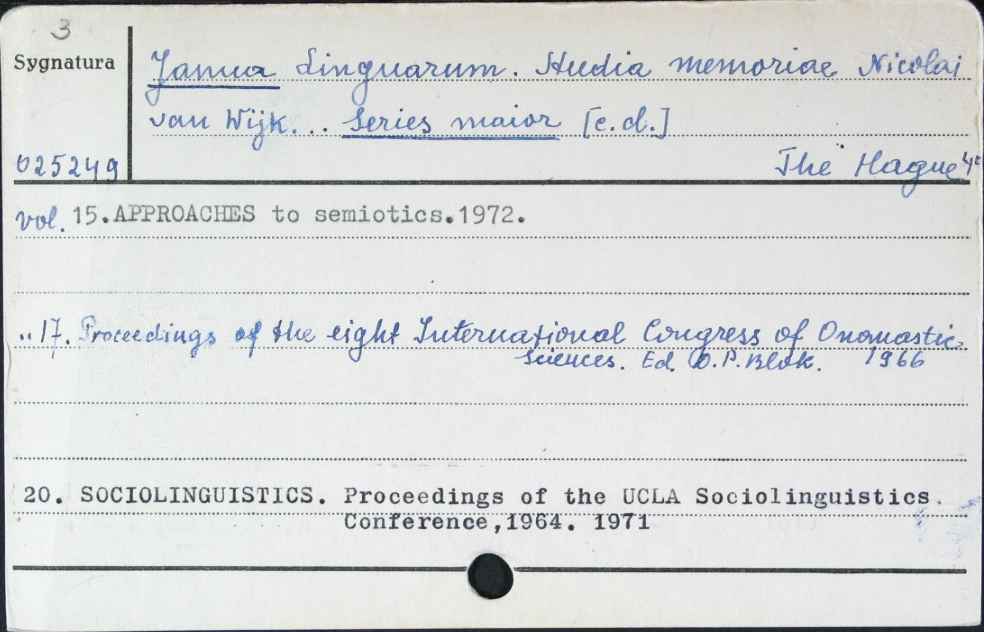 3
Sygnatura
Janua Linguarum. Studia memoriae Nicolai
van Wijk... Series maior [c.d.]
025249
The Hague 4°
vol. 15.APPROACHES to semiotics.1972.
" 17. Proceedings of the eight International Congress of Onomastic
Sciences. Ed. D.P. Blok. 1966
20. SOCIOLINGUISTICS. Proceedings of the UCLA Sociolinguistics.
Conference,1964. 1971